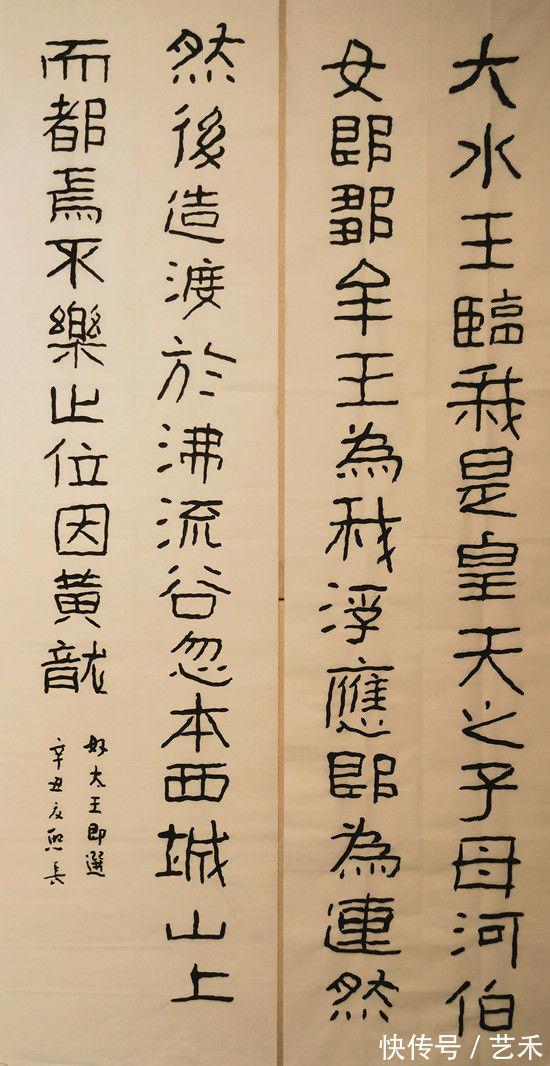 大水王臨我是皇天之子母河伯
女郎鄒牟王為我浮應即為連然
然後造渡於沸流谷忽本西城山上
而都焉不樂世位因黃龍
好太王即選
辛丑友熙長
快传号 / 艺禾